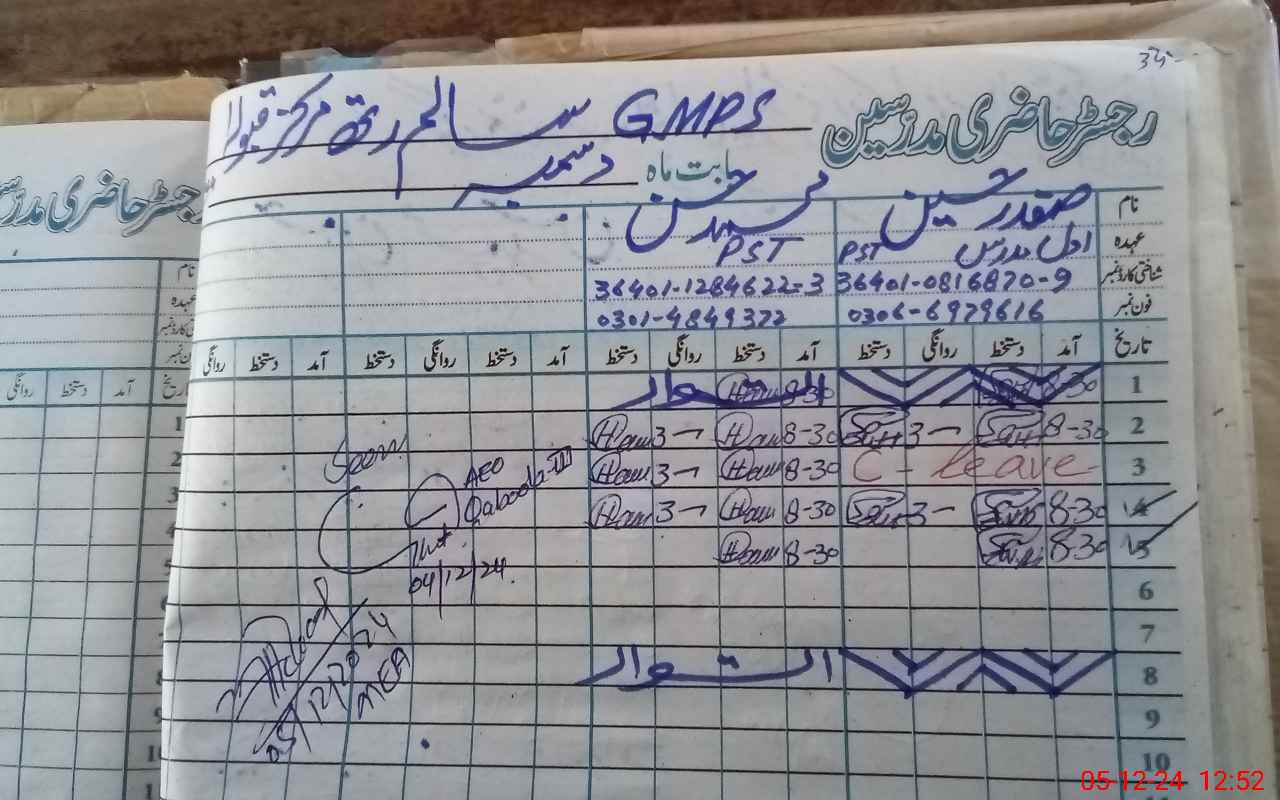 رجسٹر حاضری مدرسین GMPS سالم رتھ مرکز قبولہ
بابت ماہ دسمبر
نام صفدر حسین
عہدہ اول مدرس PST PST
شناختی کارڈ نمبر 36401-0816870-9 36401-1284622-3
فون نمبر 0306-6979616 0301-4849372
تاریخ آمد دستخط روانگی دستخط آمد دستخط روانگی دستخط آمد دستخط روانگی دستخط آمد دستخط روانگی
1 8-30 8-30 اتـــوار
2 8-30 3 8-30 Ham 3 Ham
3 C - Leave 8-30 Ham 3 Ham
4 8-30 3 8-30 Ham 3 Ham
5 8-30 8-30 Ham
6
7
8 اتـــوار
9
10
Seen
AEO
Qaboola-III
04/12/24
05/12/2024
MEA
رجسٹر حاضری
نام
عہدہ
تاریخ آمد دستخط روانگی
1
2
3
4
5
6
7
8
9
10
05-12-24 12:52